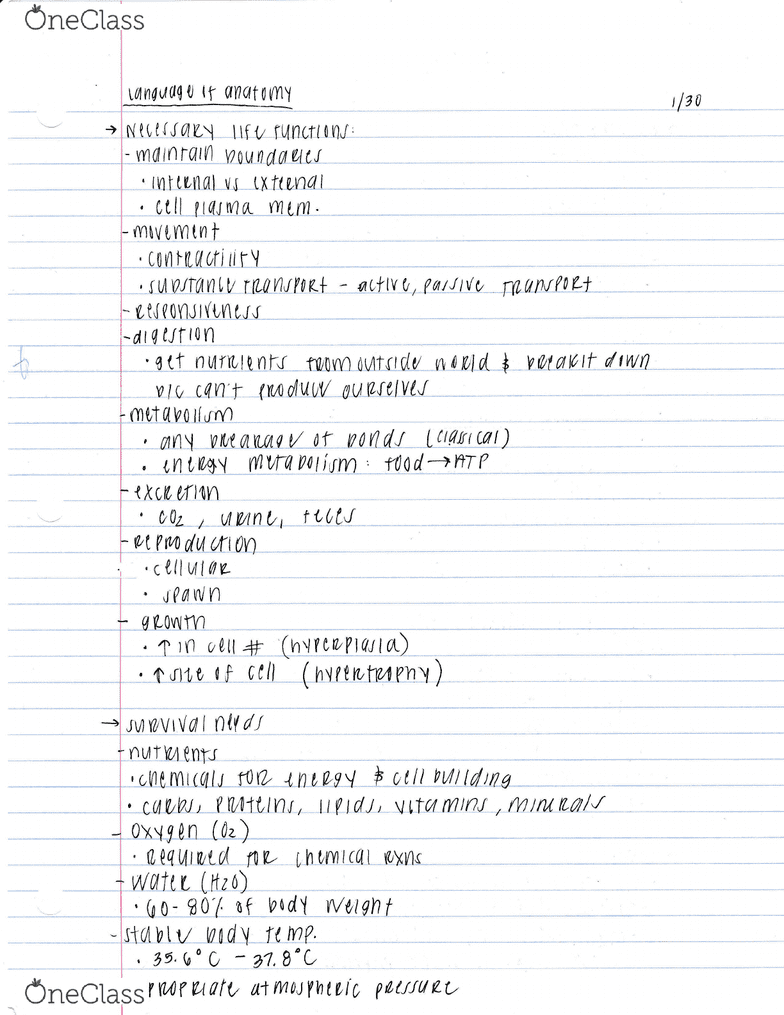 OneClass
Language of anatomy
1/30
→ Necessary life functions:
- maintain boundaries
• internal vs external
• cell plasma mem.
- movement
• contractility
• substance transport - active, passive transport
- responsiveness
- digestion
• get nutrients from outside world & break it down
b/c can't produce ourselves
- metabolism
• any breakage of bonds (classical)
• energy metabolism: food → ATP
- excretion
• CO2, urine, feces
- reproduction
• cellular
• spawn
- growth
• ↑ in cell # (hyperplasia)
• ↑ size of cell (hypertrophy)
→ survival needs
- nutrients
• chemicals for energy & cell building
• carbs, proteins, lipids, vitamins, minurals
- oxygen (O2)
• required for chemical rxns
- water (H2O)
• 60-80% of body weight
- stable body temp.
• 35.6°C - 37.8°C
OneClass
propriate atmospheric pressure